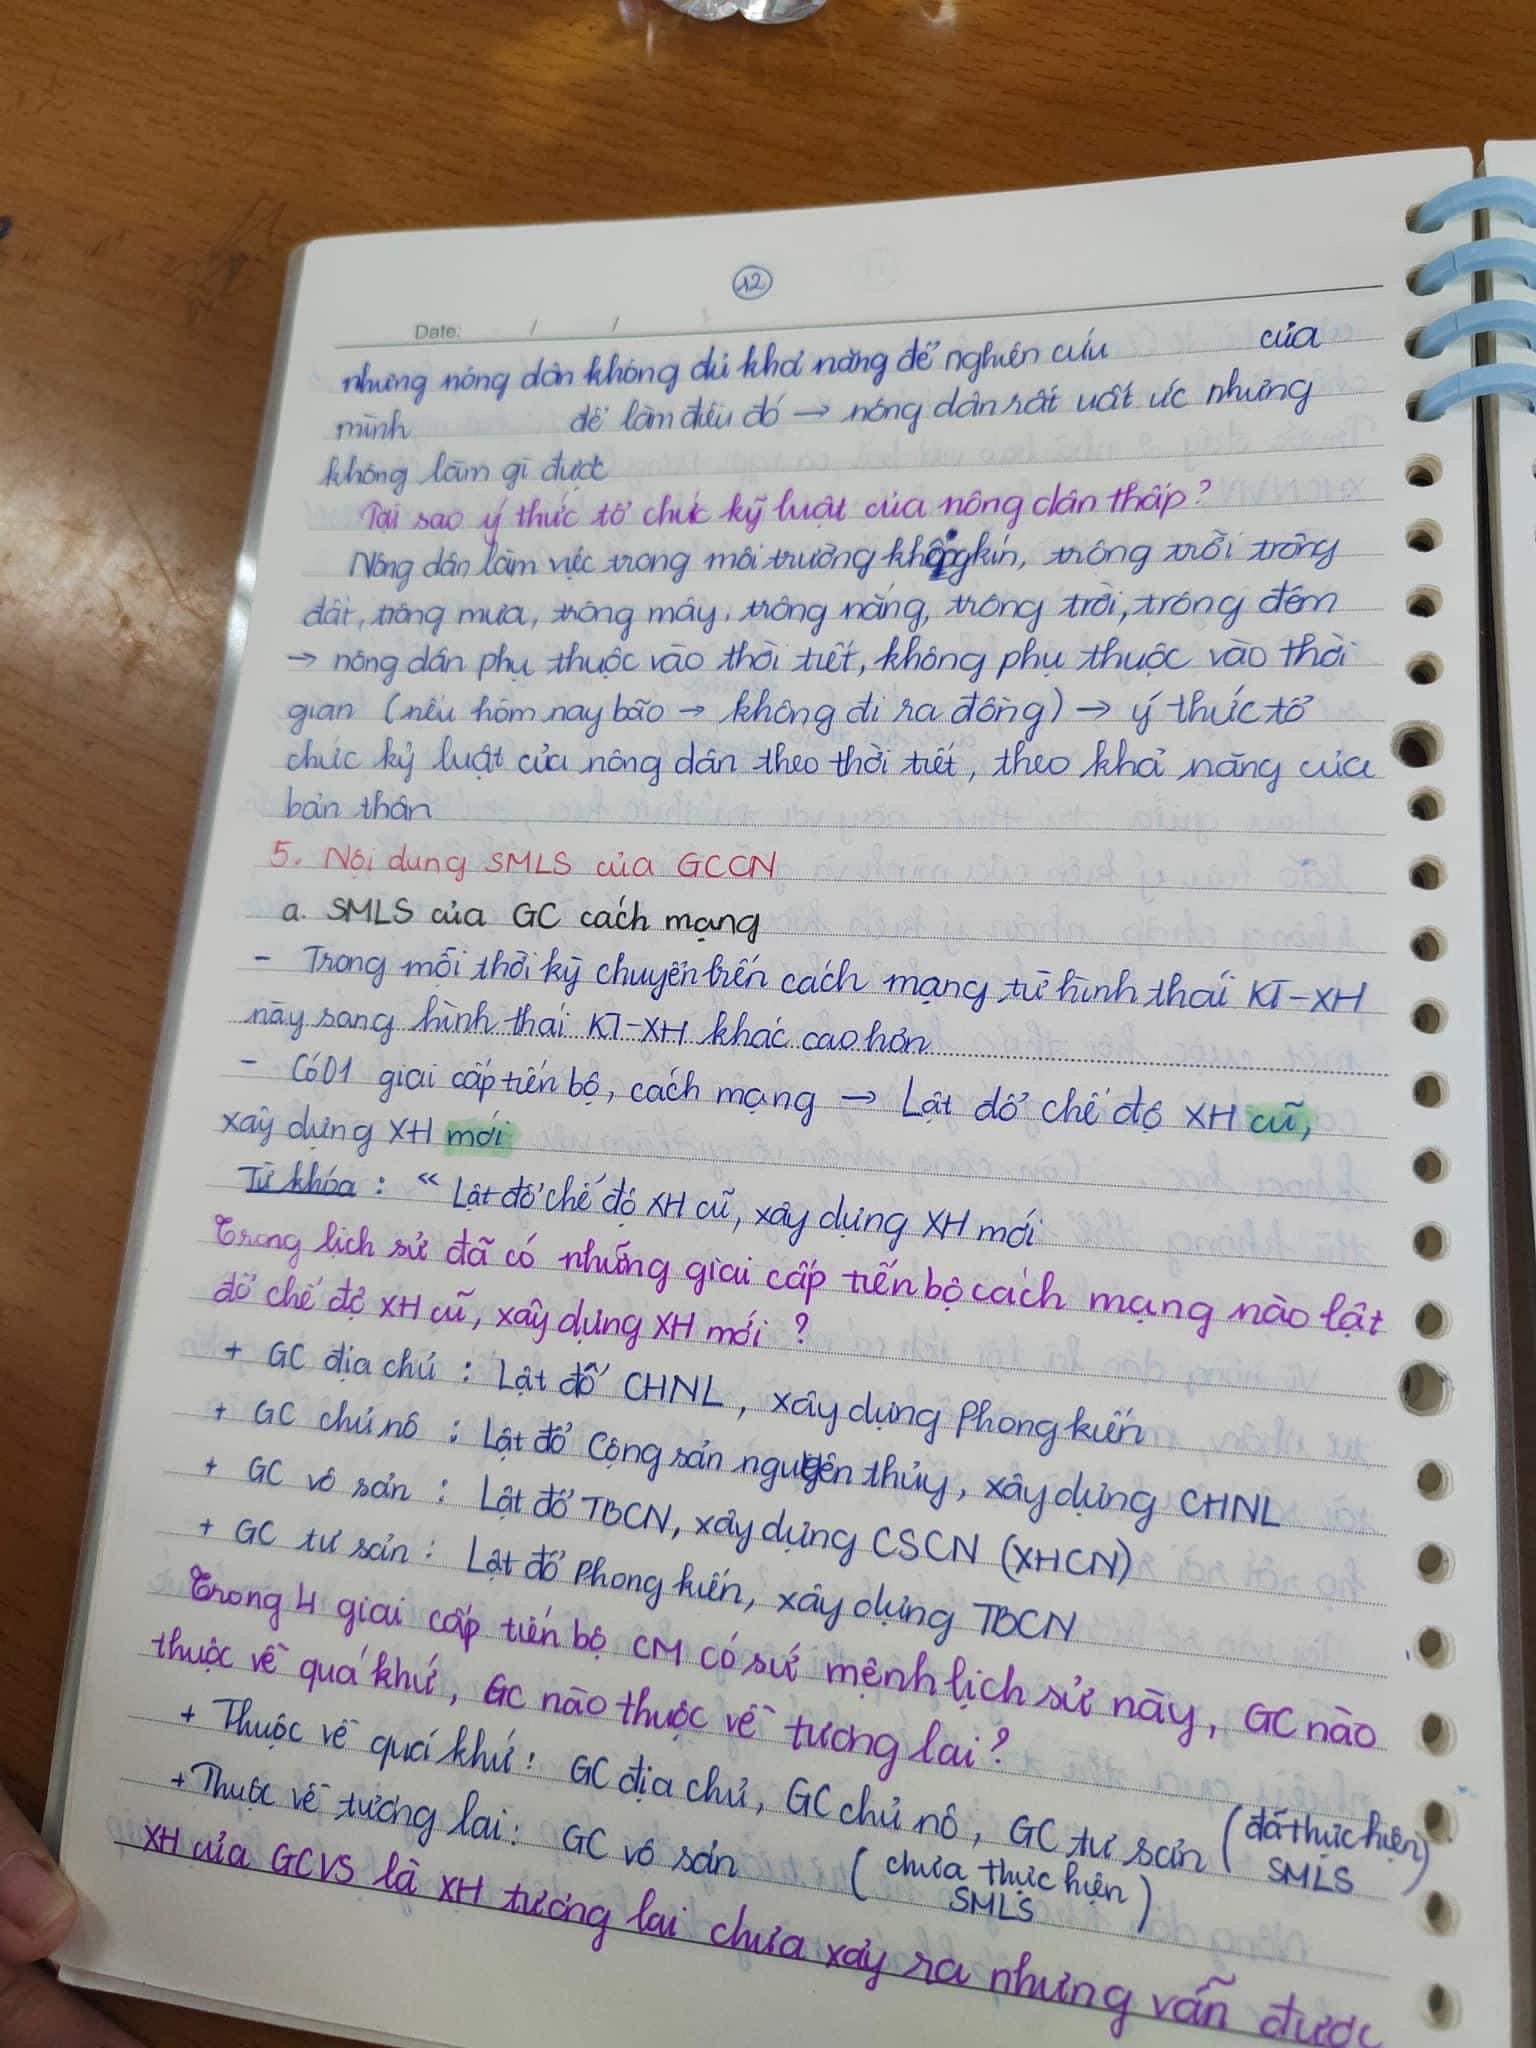 12
Date: / /
nhưng nông dân không đủ khả năng để nghiên cứu của
mình để làm điều đó → nông dân rất uất ức nhưng
không làm gì được
Tại sao ý thức tổ chức kỷ luật của nông dân thấp?
Nông dân làm việc trong môi trường không kín, trông trời trông
đất, trông mưa, trông mây, trông nắng, trông trời, trông đêm
→ nông dân phụ thuộc vào thời tiết, không phụ thuộc vào thời
gian (nếu hôm nay bão → không đi ra đồng) → ý thức tổ
chức kỷ luật của nông dân theo thời tiết, theo khả năng của
bản thân
5. Nội dung SMLS của GCCN
a. SMLS của GC cách mạng
- Trong mỗi thời kỳ chuyển biến cách mạng từ hình thái KT-XH
này sang hình thái KT-XH khác cao hơn
- Có 01 giai cấp tiến bộ, cách mạng → Lật đổ chế độ XH cũ,
xây dựng XH mới
Từ khóa : “ Lật đổ chế độ XH cũ, xây dựng XH mới
Trong lịch sử đã có những giai cấp tiến bộ cách mạng nào lật
đổ chế độ XH cũ, xây dựng XH mới ?
+ GC địa chủ : Lật đổ CHNL, xây dựng Phong kiến
+ GC chủ nô : Lật đổ Cộng sản nguyên thủy, xây dựng CHNL
+ GC vô sản : Lật đổ TBCN, xây dựng CSCN (XHCN)
+ GC tư sản : Lật đổ Phong kiến, xây dựng TBCN
Trong 4 giai cấp tiến bộ CM có sứ mệnh lịch sử này, GC nào
thuộc về quá khứ, GC nào thuộc về tương lai?
+ Thuộc về quá khứ : GC địa chủ, GC chủ nô, GC tư sản (đã thực hiện SMLS)
+ Thuộc về tương lai : GC vô sản (chưa thực hiện SMLS)
XH của GCVS là XH tương lai chưa xảy ra nhưng vẫn được